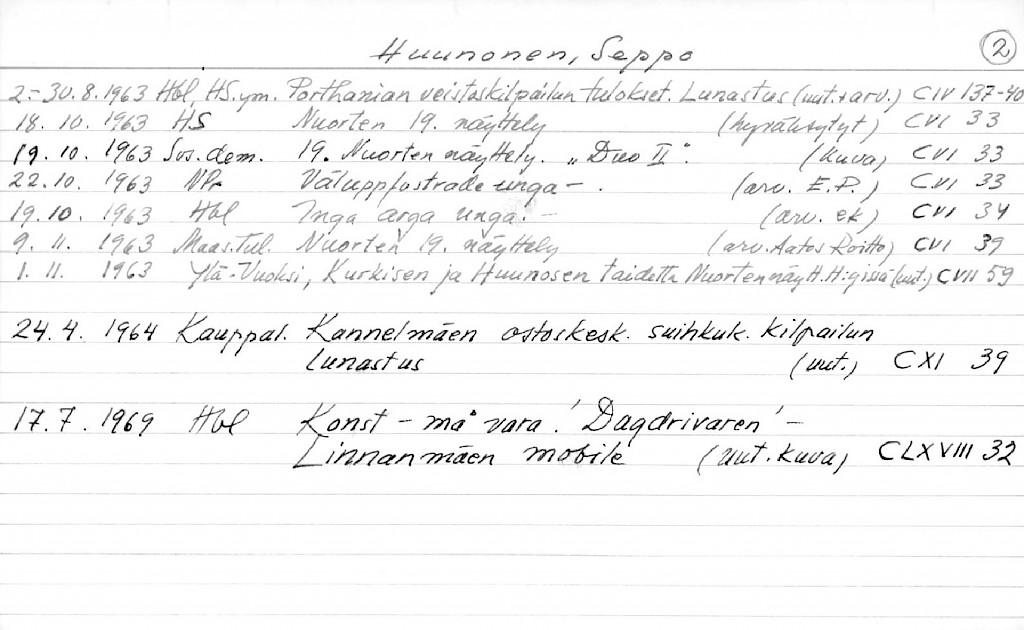 Huunonen, Seppo 2
2.-30.8.1963 Hbl, HS. ym. Porthanian veistoskilpailun tulokset. Lunastus (uut. + arv.) CIV 137-40
18.10. 1963 HS Nuorten 19. näyttely (hyväksytyt) CVI 33
19.10. 1963 Sos.dem. 19. Nuorten näyttely. „Duo II". (kuva) CVI 33
22.10. 1963 NPr Väluppfostrade unga - . (arv. E.P.) CVI 33
19.10. 1963 Hbl Inga arga unga. - (arv. ek) CVI 34
9.11. 1963 Maas.Tul. Nuorten 19. näyttely (arv. Aatos Roitto) CVI 39
1.11. 1963 Ylä-Vuoksi, Kurkisen ja Huunosen taidetta Nuorten näytt. H:gissä (uut.) CVII 59
24.4. 1964 Kauppal. Kannelmäen ostoskesk. suihkuk. kilpailun
lunastus (uut.) CXI 39
17.7. 1969 Hbl Konst - må vara! 'Dagdrivaren' -
Linnanmäen mobile (uut. kuva) CLXVIII 32